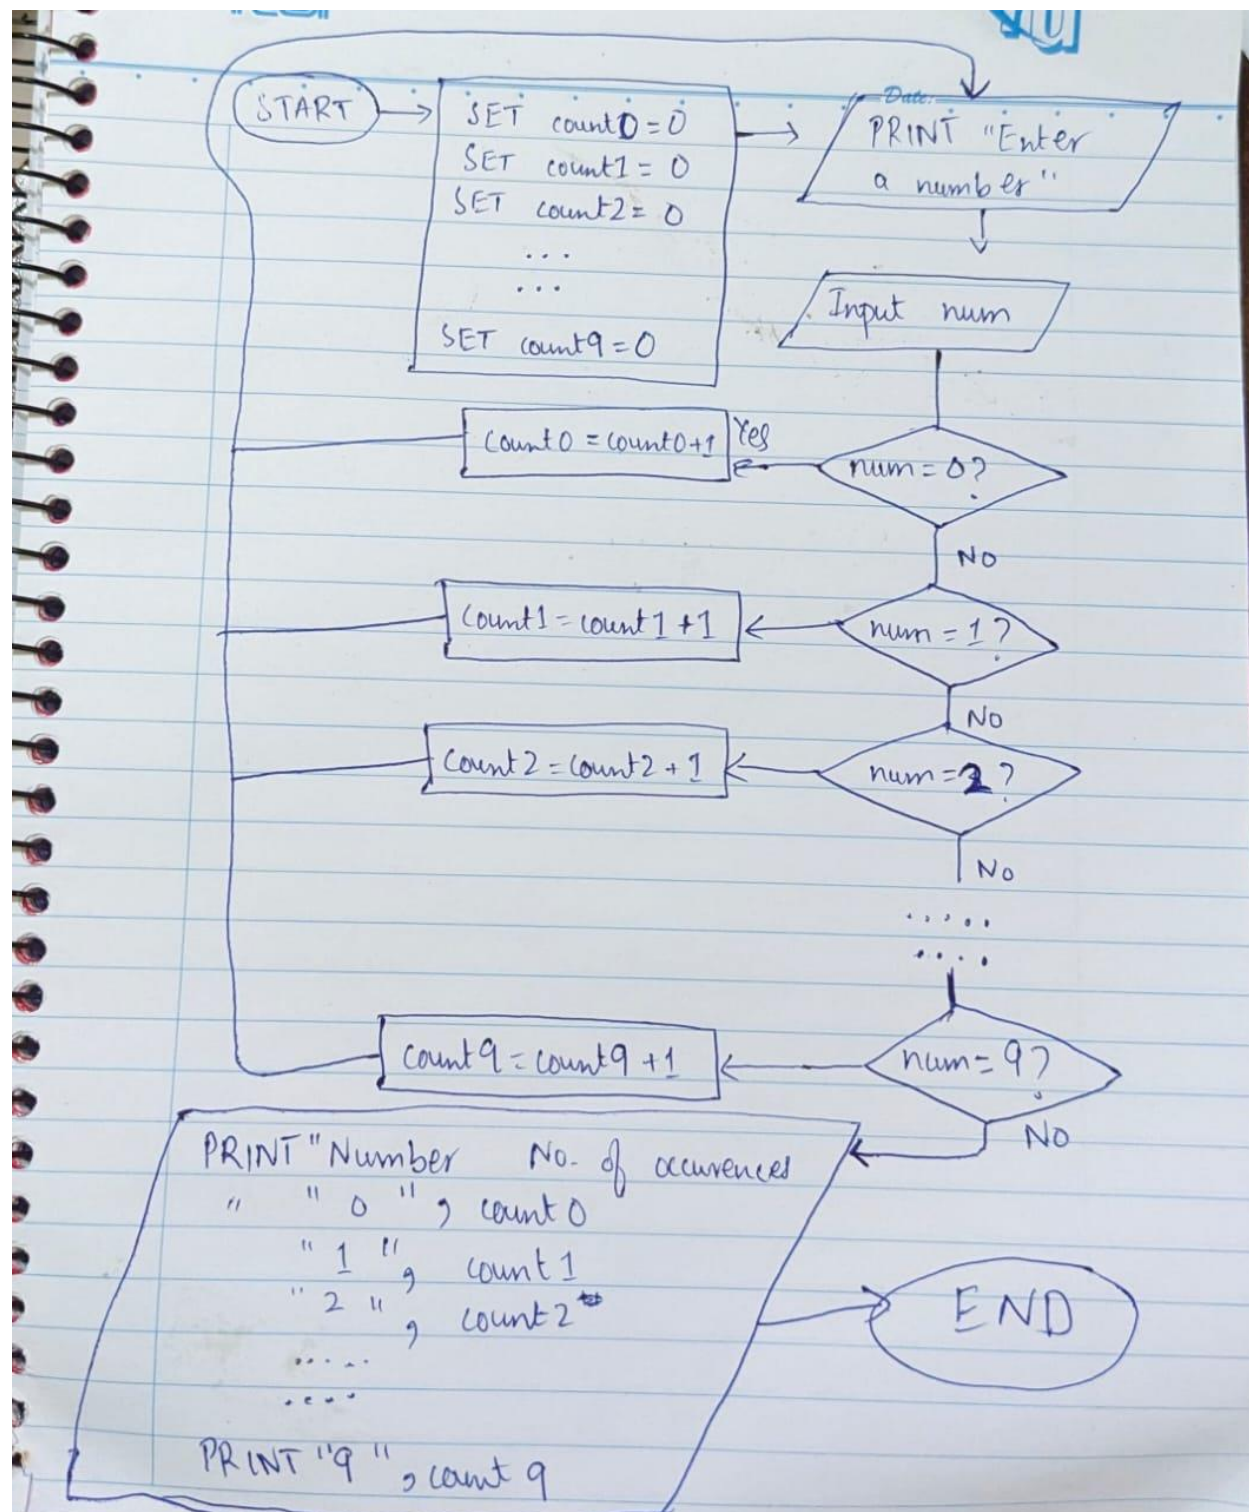 Date:
START
SET count0 = 0
SET count1 = 0
SET count2 = 0
...
...
SET count9 = 0
PRINT "Enter
a number"
Input num
num = 0?
Yes
count0 = count0+1
NO
num = 1?
count1 = count1 + 1
NO
num = 2?
count2 = count2 + 1
No
.....
....
num = 9?
count9 = count9 + 1
NO
PRINT "Number No. of occurences
" " 0 " , count 0
" 1 " , count 1
" 2 " , count 2
.....
....
PRINT "9 " , count 9
END